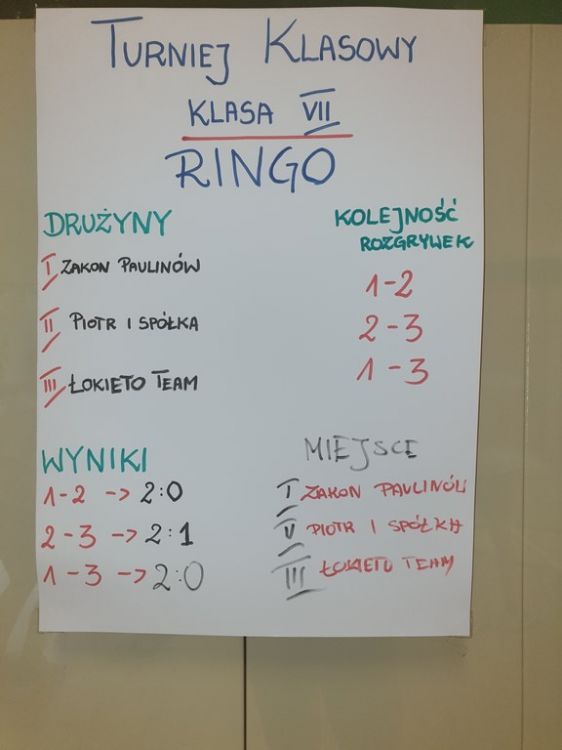 TURNIEJ KLASOWY
KLASA VII
RINGO
DRUŻYNY
I ZAKON PAULINÓW
II PIOTR I SPÓŁKA
III ŁOKIETO TEAM
KOLEJNOŚĆ
ROZGRYWEK
1-2
2-3
1-3
WYNIKI
1-2 -> 2:0
2-3 -> 2:1
1-3 -> 2:0
MIEJSCE
I ZAKON PAULINÓW
II PIOTR I SPÓŁKA
III ŁOKIETO TEAM